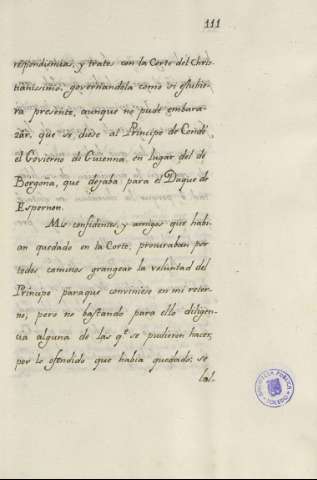 111
respondencias, y trates con la Corte del Chris
tianissimo, governandola como si estubie
ra presente, aunque no pude embara
zar, que se diese al Principe de Condè,
el Govierno de Guienna, en lugar del de
Borgoña, que dejaba para el Duque de
Espernon.
Mis confidentes, y amigos que habi
an quedado en la Corte, procuraban por
todos caminos grangear la voluntad del
Principe paraque conviniese en mi retor
no, pero no bastando para ello diligen
cia alguna de las q.e se pudieron hacer,
por lo ofendido que habia quedado, se
BIBLIOTECA PUBLICA
TOLEDO